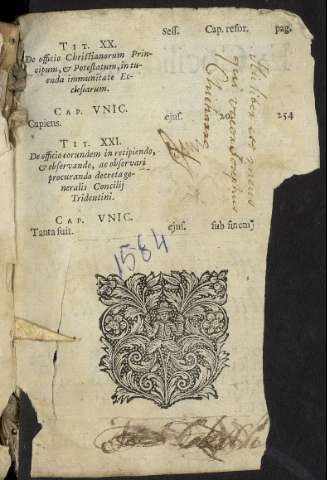 Sess. Cap. refor. pag.
TIT. XX.
De officio Christianorum Prin-
cipum, & Potestatum, in tu-
enda immunitate Ec-
clesiarum.
CAP. VNIC.
Cupiens. ejus. 20 254
TIT. XXI.
De officio eorundem in recipiendo,
& observando, ac observari
procurando decreta ge-
neralis Concilij
Tridentini.
CAP. VNIC.
Tanta fuit. ejus. sub finem
1564
liber est